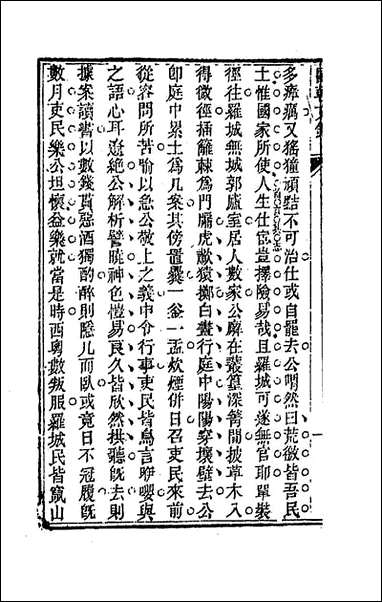 多瘴癘又猺獞頑黠不可治仕或自罷去公喟然曰荒徼皆吾民
土惟國家所使人生仕宦豈擇險易哉且羅城可遂無官耶單裝
徑往羅城無城郭廬室居人數家公廨在叢篁深箐間披草木入
得徼徑插籬棘爲門牖虎猿擲白晝行庭中陽陽穿壞壁去公
卽庭中累土爲几案其傍置爨一釜一盂炊煙併日召吏民來前
從容問所苦喻以急公敬上之義中令行事吏民皆鳥言咿嚶與
之語心耳遼絶公解析譬曉神色愷易良久皆欣然拱聽旣去則
據案讀書以數錢貰惡酒獨酌醉則隱几而臥或竟日不冠履旣
數月吏民樂公坦懷益樂就當是時西粵數叛服羅城民皆竄山